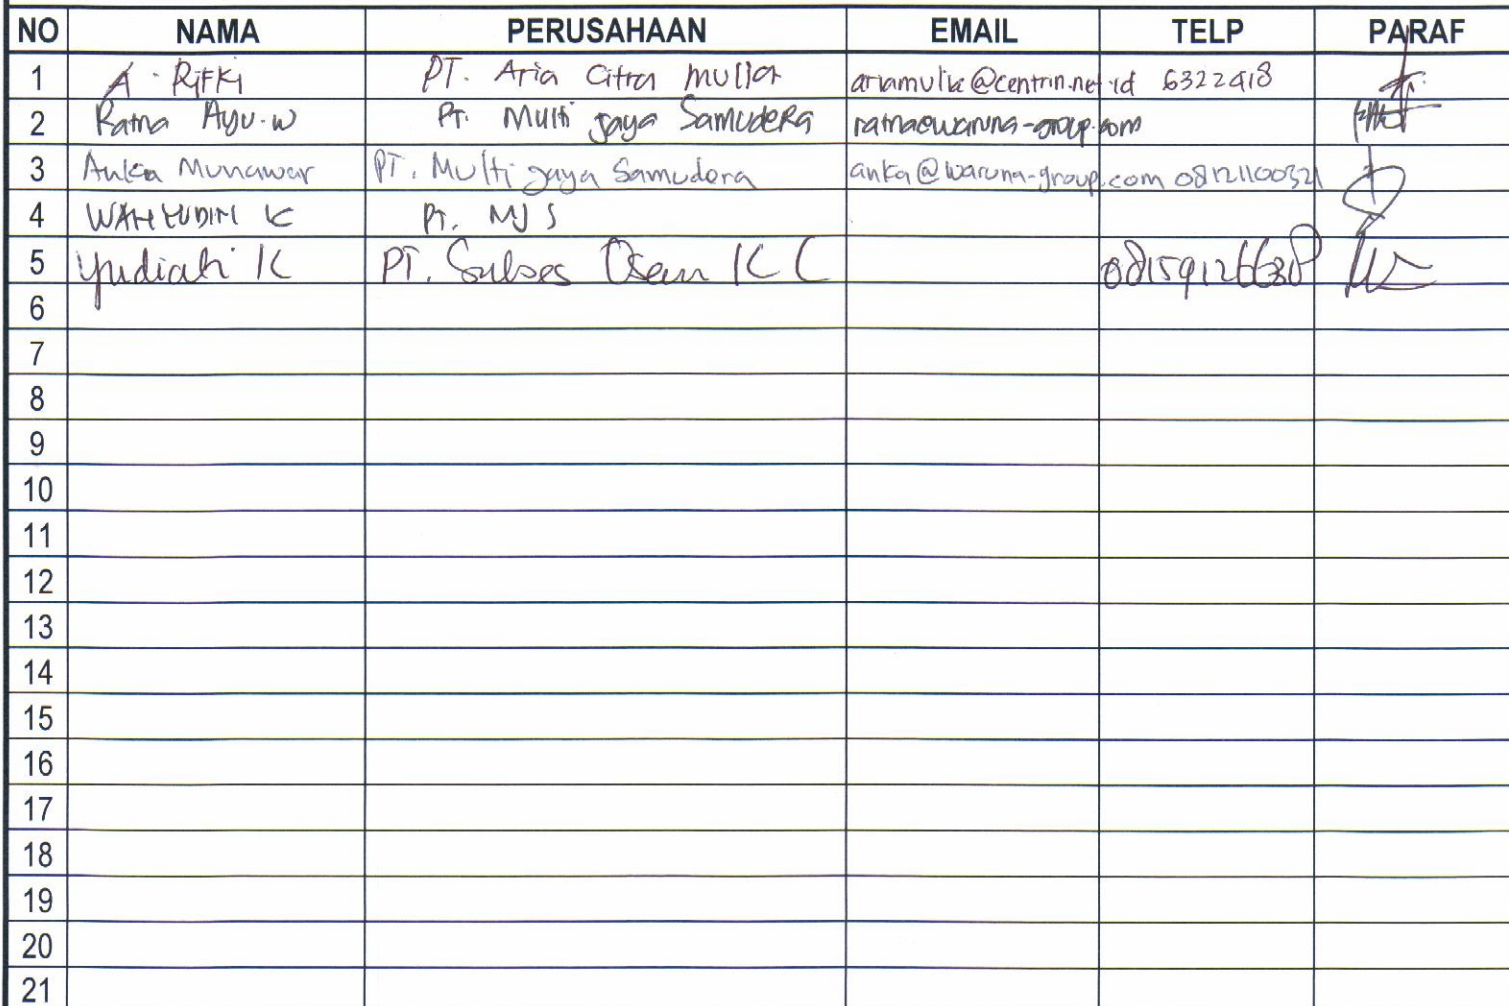 NO NAMA PERUSAHAAN EMAIL TELP PARAF
1 A. Rifki PT. Aria Citra Mulia ariamulia@centrin.net.id 6322418
2 Ratna Ayu.w PT. Multi Jaya Samudera ratna@waruna-group.com
3 Anka Munawar PT. Multi Jaya Samudera anka@waruna-group.com 08121100321
4 WAHYUDIN K PT. MJS
5 Yudiah K PT. Sukses Osean KC
6
7
8
9
10
11
12
13
14
15
16
17
18
19
20
21